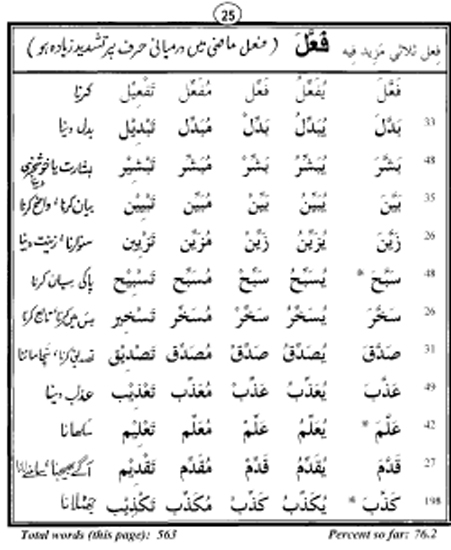 25
فعل ثلاثي مزيد فيه فَعَّلَ ( فعل ماضی میں درمیانی حرف پر تشدید زیادہ ہو )
فَعَّلَ يُفَعِّلُ فَعِّلْ مُفَعِّل تَفْعِيْل کرنا
33 بَدَّلَ يُبَدِّلُ بَدِّلْ مُبَدِّل تَبْدِيْل بدل دینا
48 بَشَّرَ يُبَشِّرُ بَشِّرْ مُبَشِّر تَبْشِيْر بشارت یا خوشخبری دینا
35 بَيَّنَ يُبَيِّنُ بَيِّنْ مُبَيِّن تَبْيِيْن بیان کرنا، واضح کرنا
26 زَيَّنَ يُزَيِّنُ زَيِّنْ مُزَيِّن تَزْيِين زینت دینا
48 سَبَّحَ * يُسَبِّحُ سَبِّحْ مُسَبِّح تَسْبِيْح پاکی بیان کرنا
26 سَخَّرَ يُسَخِّرُ سَخِّرْ مُسَخِّر تَسْخِير بس میں کرنا، تابع کرنا
31 صَدَّقَ يُصَدِّقُ صَدِّقْ مُصَدِّق تَصْدِيْق تصدیق کرنا، سچا ماننا
49 عَذَّبَ يُعَذِّبُ عَذِّبْ مُعَذِّب تَعْذِيْب عذاب دینا
42 عَلَّمَ * يُعَلِّمُ عَلِّمْ مُعَلِّم تَعْلِيْم سکھانا
27 قَدَّمَ يُقَدِّمُ قَدِّمْ مُقَدِّم تَقْدِيْم آگے بھیجنا، سامنے لانا
198 كَذَّبَ * يُكَذِّبُ كَذِّبْ مُكَذِّب تَكْذِيْب جھٹلانا
Total words (this page): 563 Percent so far: 76.2